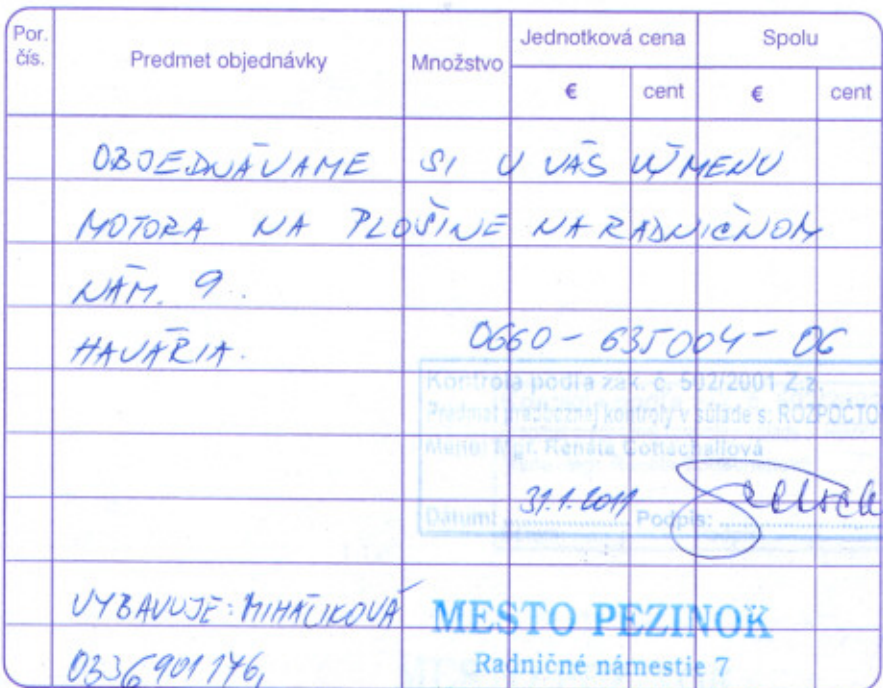 Por. čís. Predmet objednávky Množstvo Jednotková cena Spolu
€ cent € cent
OBJEDNÁVAME SI U VÁS VÝMENU
MOTORA NA PLOŠINE NA RADNIČNOM
NÁM. 9.
HAVÁRIA. 0660-635004-06
Kontrola podľa zák. č. 502/2001 Z.z.
Predmet predbežnej kontroly v súlade s: ROZPOČTO
Meno: Mgr. Renáta Gottschallová
Dátum: 31.1.2011 Podpis:
VYBAVUJE: MIHÁLIKOVÁ
MESTO PEZINOK
Radničné námestie 7
0336901176,